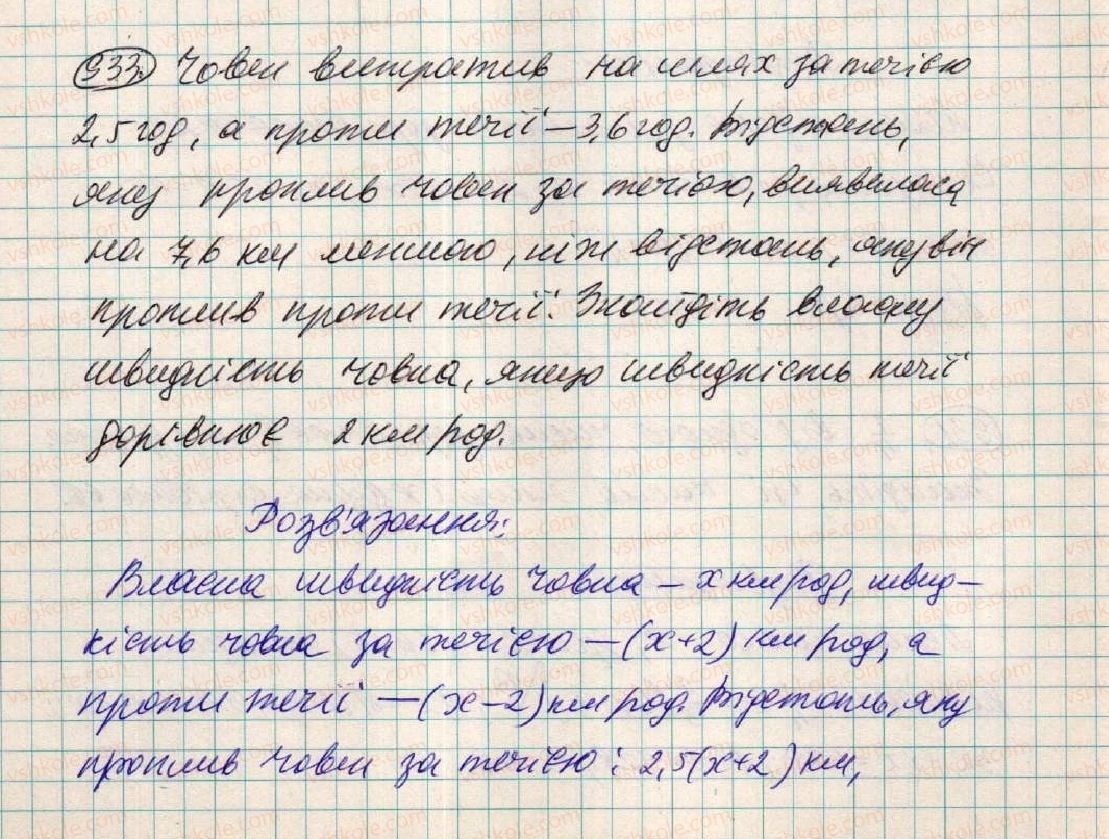 933. Човен витратив на шлях за течією
2,5 год, а проти течії – 3,6 год. Відстань,
яку проплив човен за течією, виявилася
на 7,6 км меншою, ніж відстань, яку він
проплив проти течії. Знайдіть власну
швидкість човна, якщо швидкість течії
дорівнює 2 км/год.
Розв'язання:
Власна швидкість човна – x км/год, швид-
кість човна за течією – (x+2) км/год, а
проти течії – (x-2) км/год. Відстань, яку
проплив човен за течією: 2,5(x+2) км,